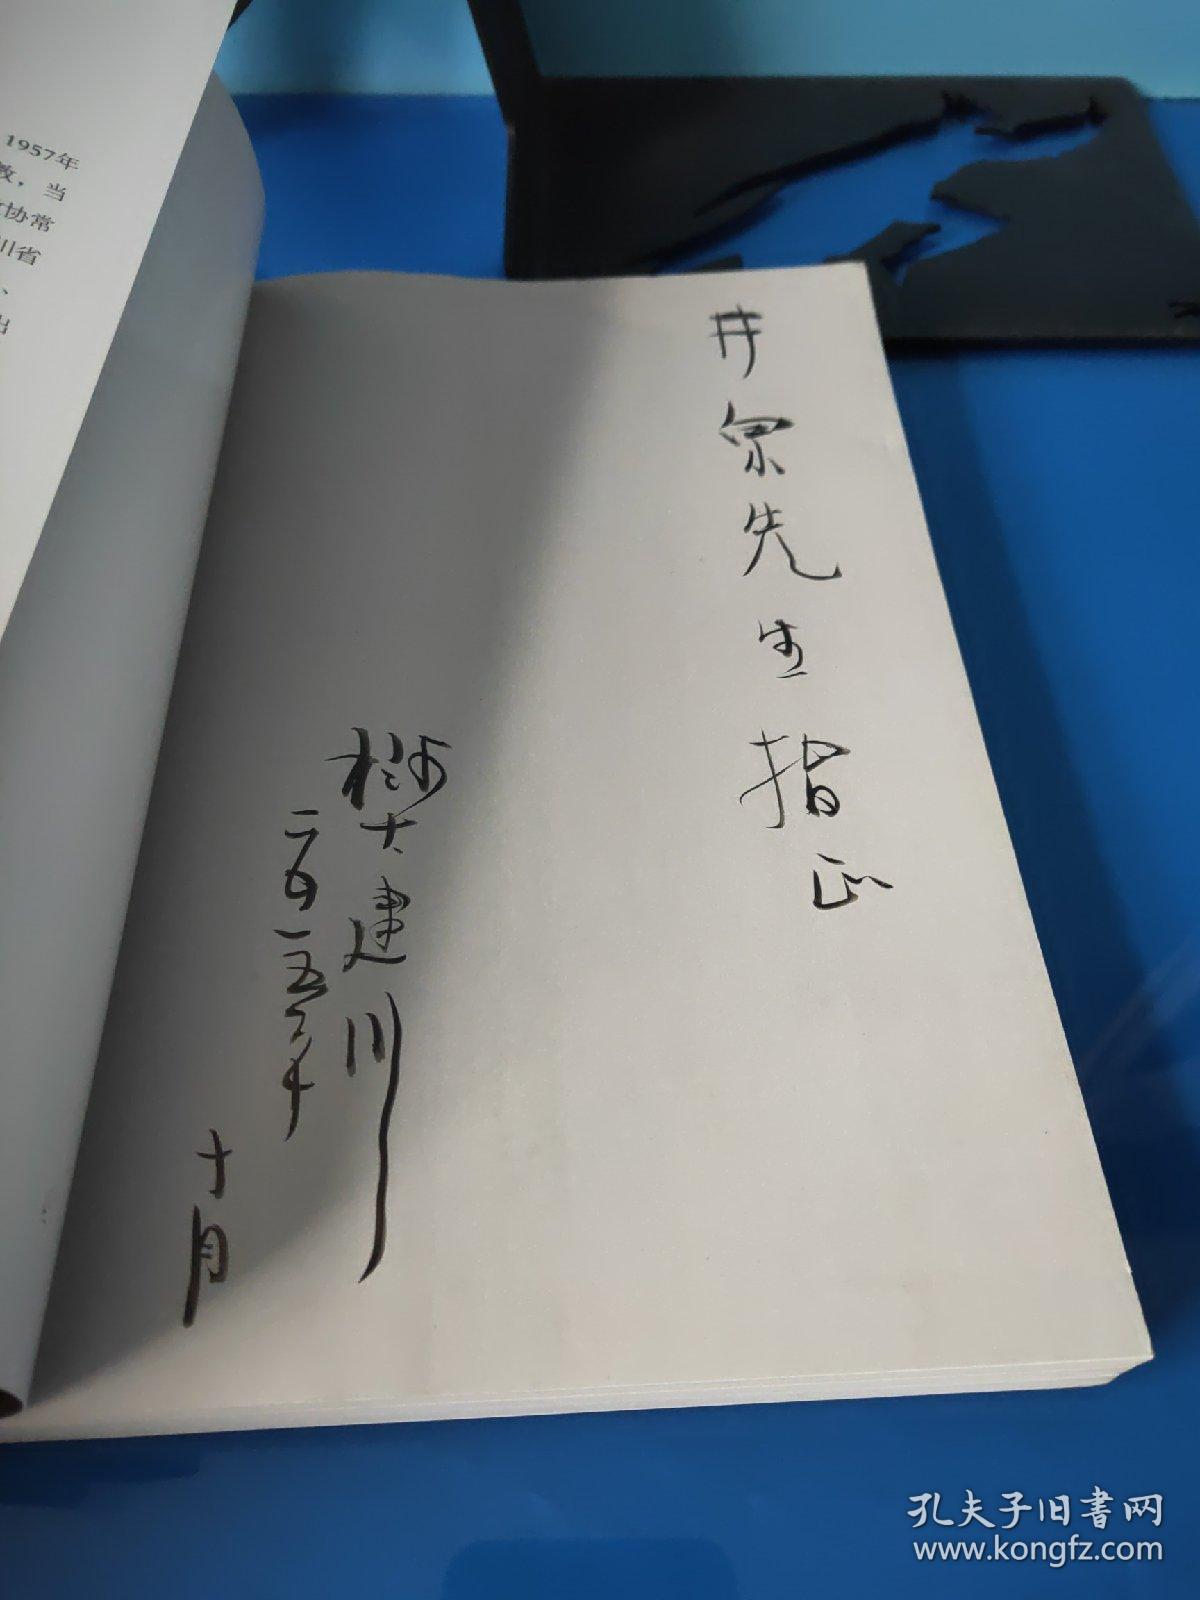 1957年
教，当
协常
川省
、
出
井泉先生指正
樊建川
二〇一五年
十月
孔夫子旧书网
www.kongfz.com